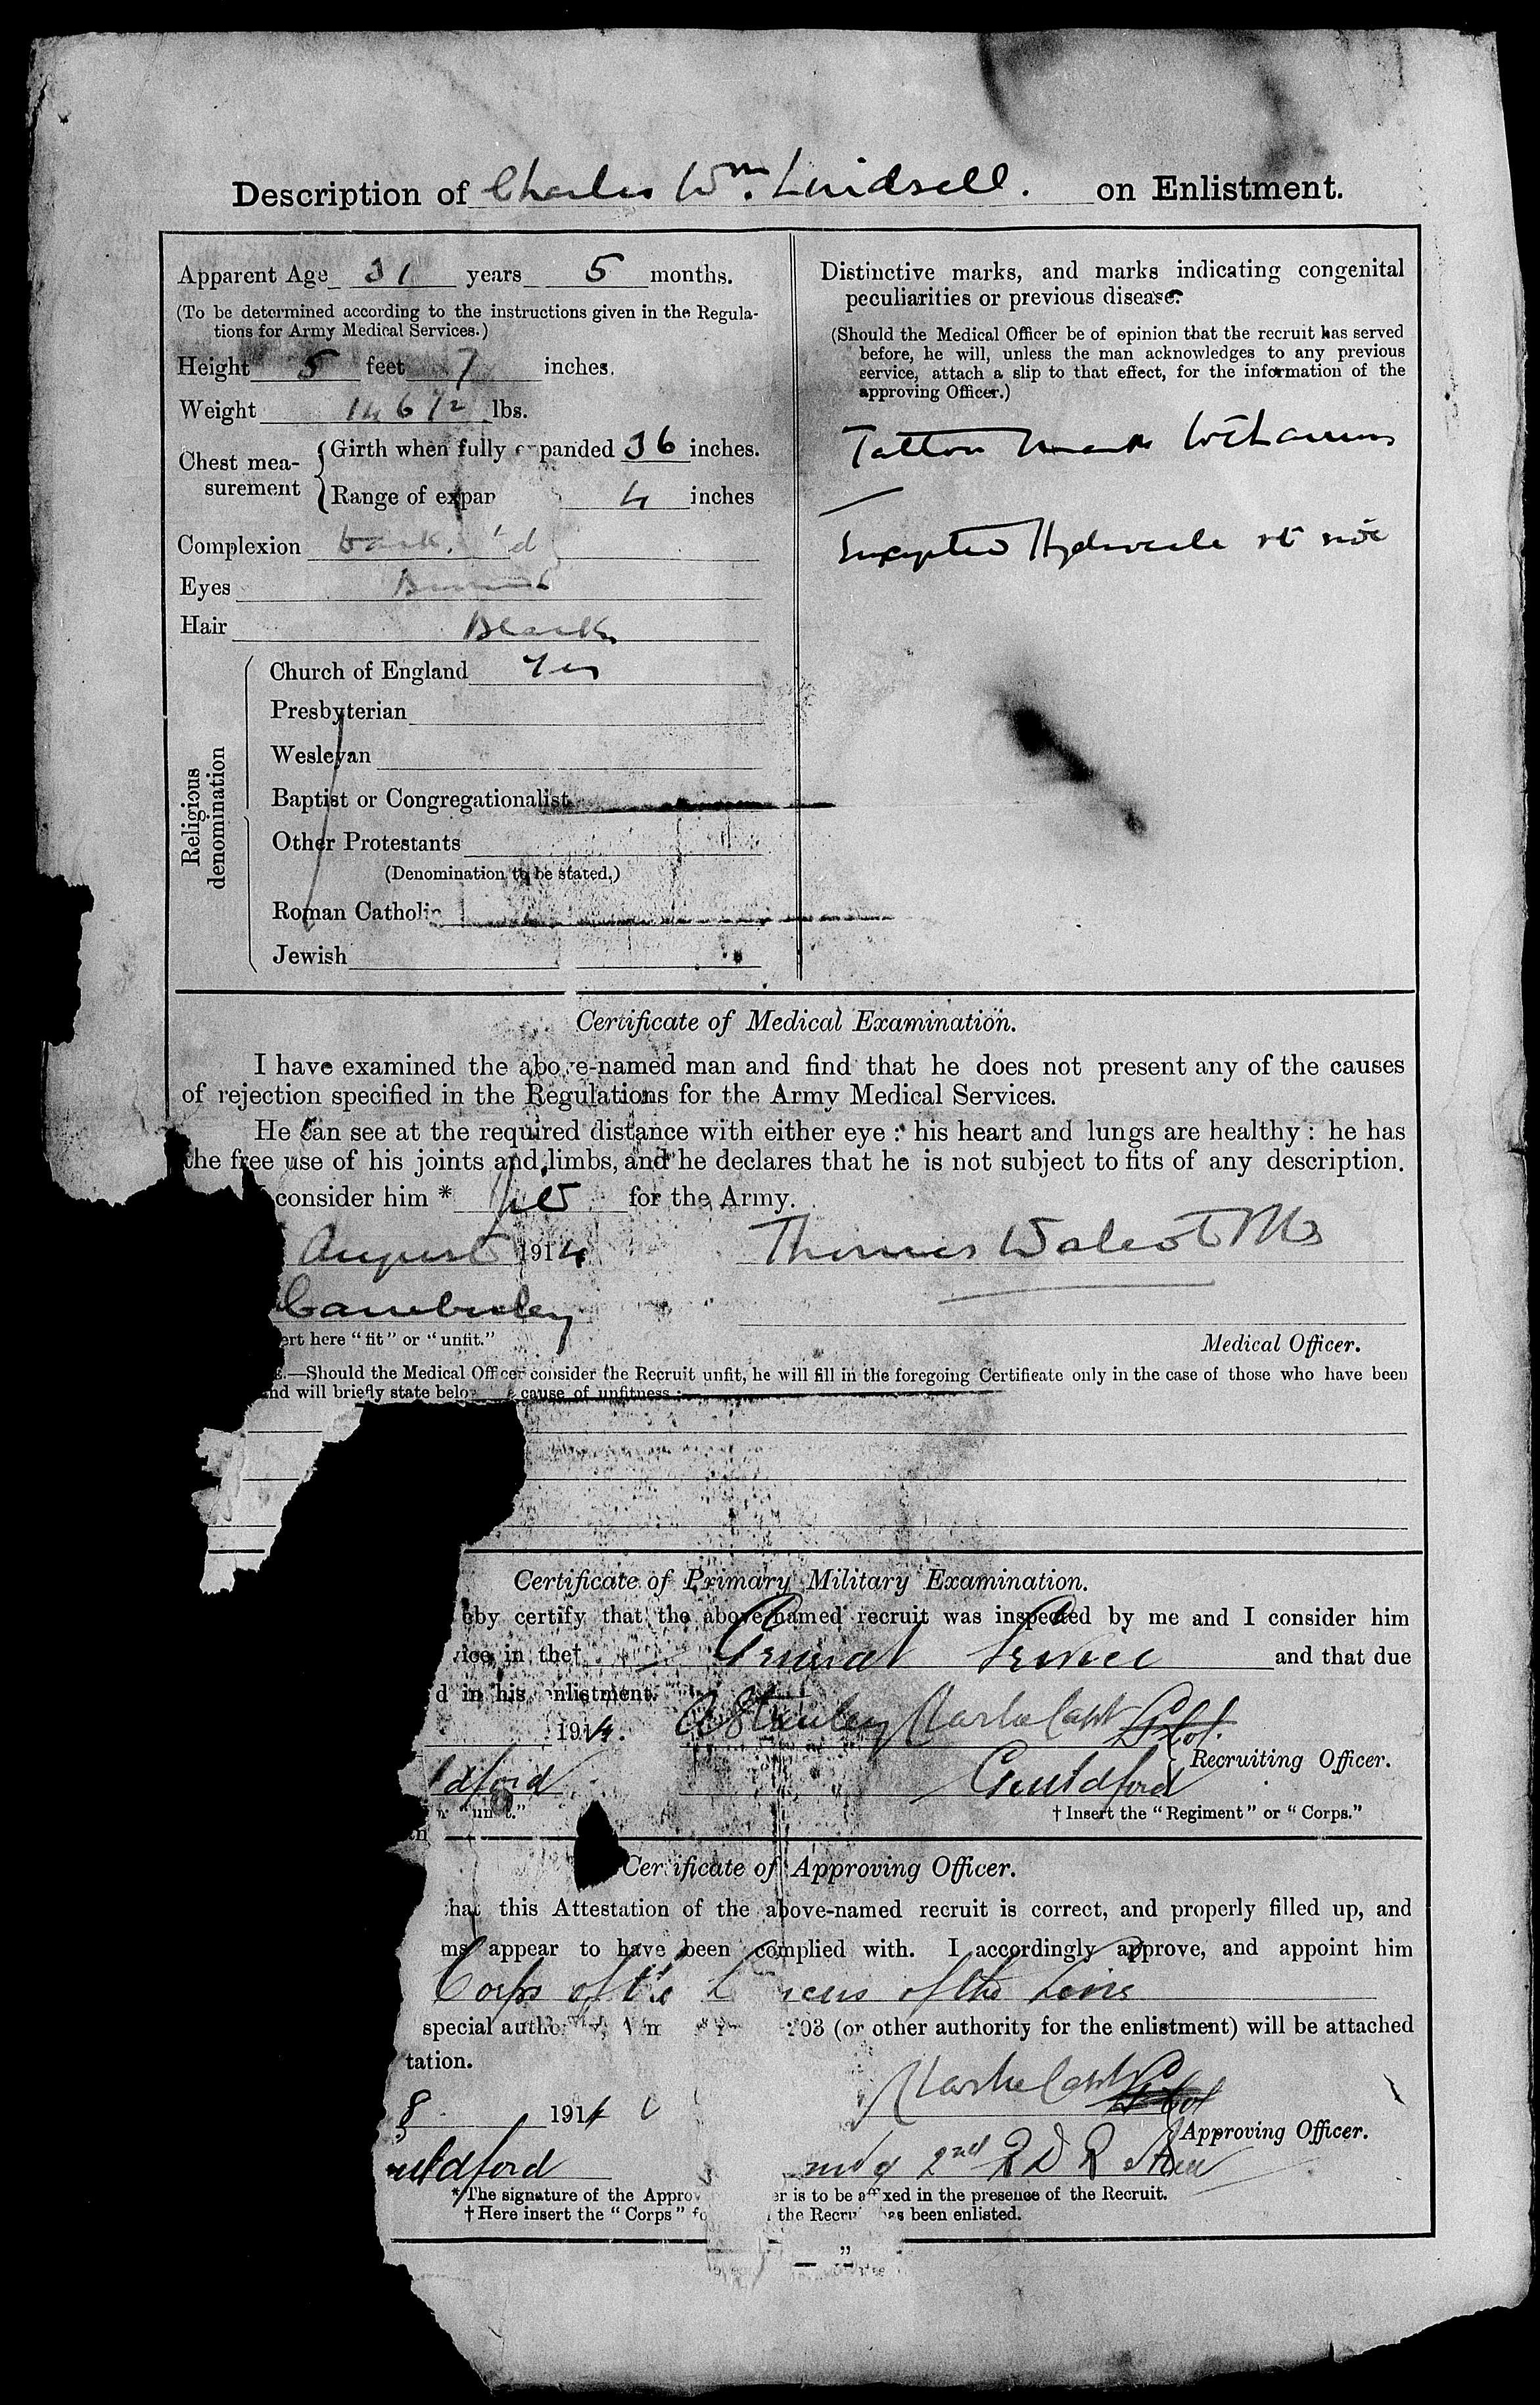 Description of Charles Wm. Lindsell. on Enlistment.
Apparent Age 31 years 5 months.
(To be determined according to the instructions given in the Regula-
tions for Army Medical Services.)
Height 5 feet 7 inches.
Weight 146 1/2 lbs.
Chest mea-
surement
Girth when fully expanded 36 inches.
Range of expan 4 inches
Complexion Dark
Eyes Brown
Hair Black
Religious
denomination
Church of England Yes
Presbyterian
Wesleyan
Baptist or Congregationalist
Other Protestants
(Denomination to be stated.)
Roman Catholic
Jewish
Distinctive marks, and marks indicating congenital
peculiarities or previous disease.
(Should the Medical Officer be of opinion that the recruit has served
before, he will, unless the man acknowledges to any previous
service, attach a slip to that effect, for the information of the
approving Officer.)
Tattoo marks both arms
Hydrocele rt side
Certificate of Medical Examination.
I have examined the above-named man and find that he does not present any of the causes
of rejection specified in the Regulations for the Army Medical Services.
He can see at the required distance with either eye : his heart and lungs are healthy : he has
the free use of his joints and limbs, and he declares that he is not subject to fits of any description.
consider him * fit for the Army.
August 1914 Thomas Walcot MB
Camberley
ert here "fit" or "unfit."
Medical Officer.
.—Should the Medical Officer consider the Recruit unfit, he will fill in the foregoing Certificate only in the case of those who have been
and will briefly state below cause of unfitness :—
Certificate of Primary Military Examination.
eby certify that the above-named recruit was inspected by me and I consider him
vice in the† General Service and that due
d in his enlistment.
1914. A Stanley Capt
Recruiting Officer.
ldford Guildford
"unfit."
† Insert the "Regiment" or "Corps."
Certificate of Approving Officer.
that this Attestation of the above-named recruit is correct, and properly filled up, and
ms appear to have been complied with. I accordingly approve, and appoint him
Corps of the L ncers of the Line
special autho 203 (or other authority for the enlistment) will be attached
tation.
8 1914 Capt
Approving Officer.
uildford mdg 2nd R D R Area
* The signature of the Approv er is to be affixed in the presence of the Recruit.
† Here insert the "Corps" fo the Recru has been enlisted.